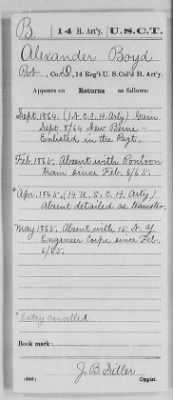 B | 14 H. Art'y. | U.S.C.T.
Alexander Boyd
Pvt, Co. D, 14 Reg't U. S. Col'd H. Art'y.
Appears on Returns as follows:
Sept. 1864. (1 N.C.C.H. Arty) Gain
Sept. 8/64 New Berne -
Enlisted in the Regt.
Feb. 1865. Absent with Pontoon
train since Feb. 6/65.
*Apr. 1865. (14 U.S.C.H. Arty)
Absent detailed as teamster.
May 1865. Absent with 15 N.Y.
Engineer Corps since Feb.
6/65.
*Entry cancelled
Book mark:
(546)
J. B. Sitler
Copyist.